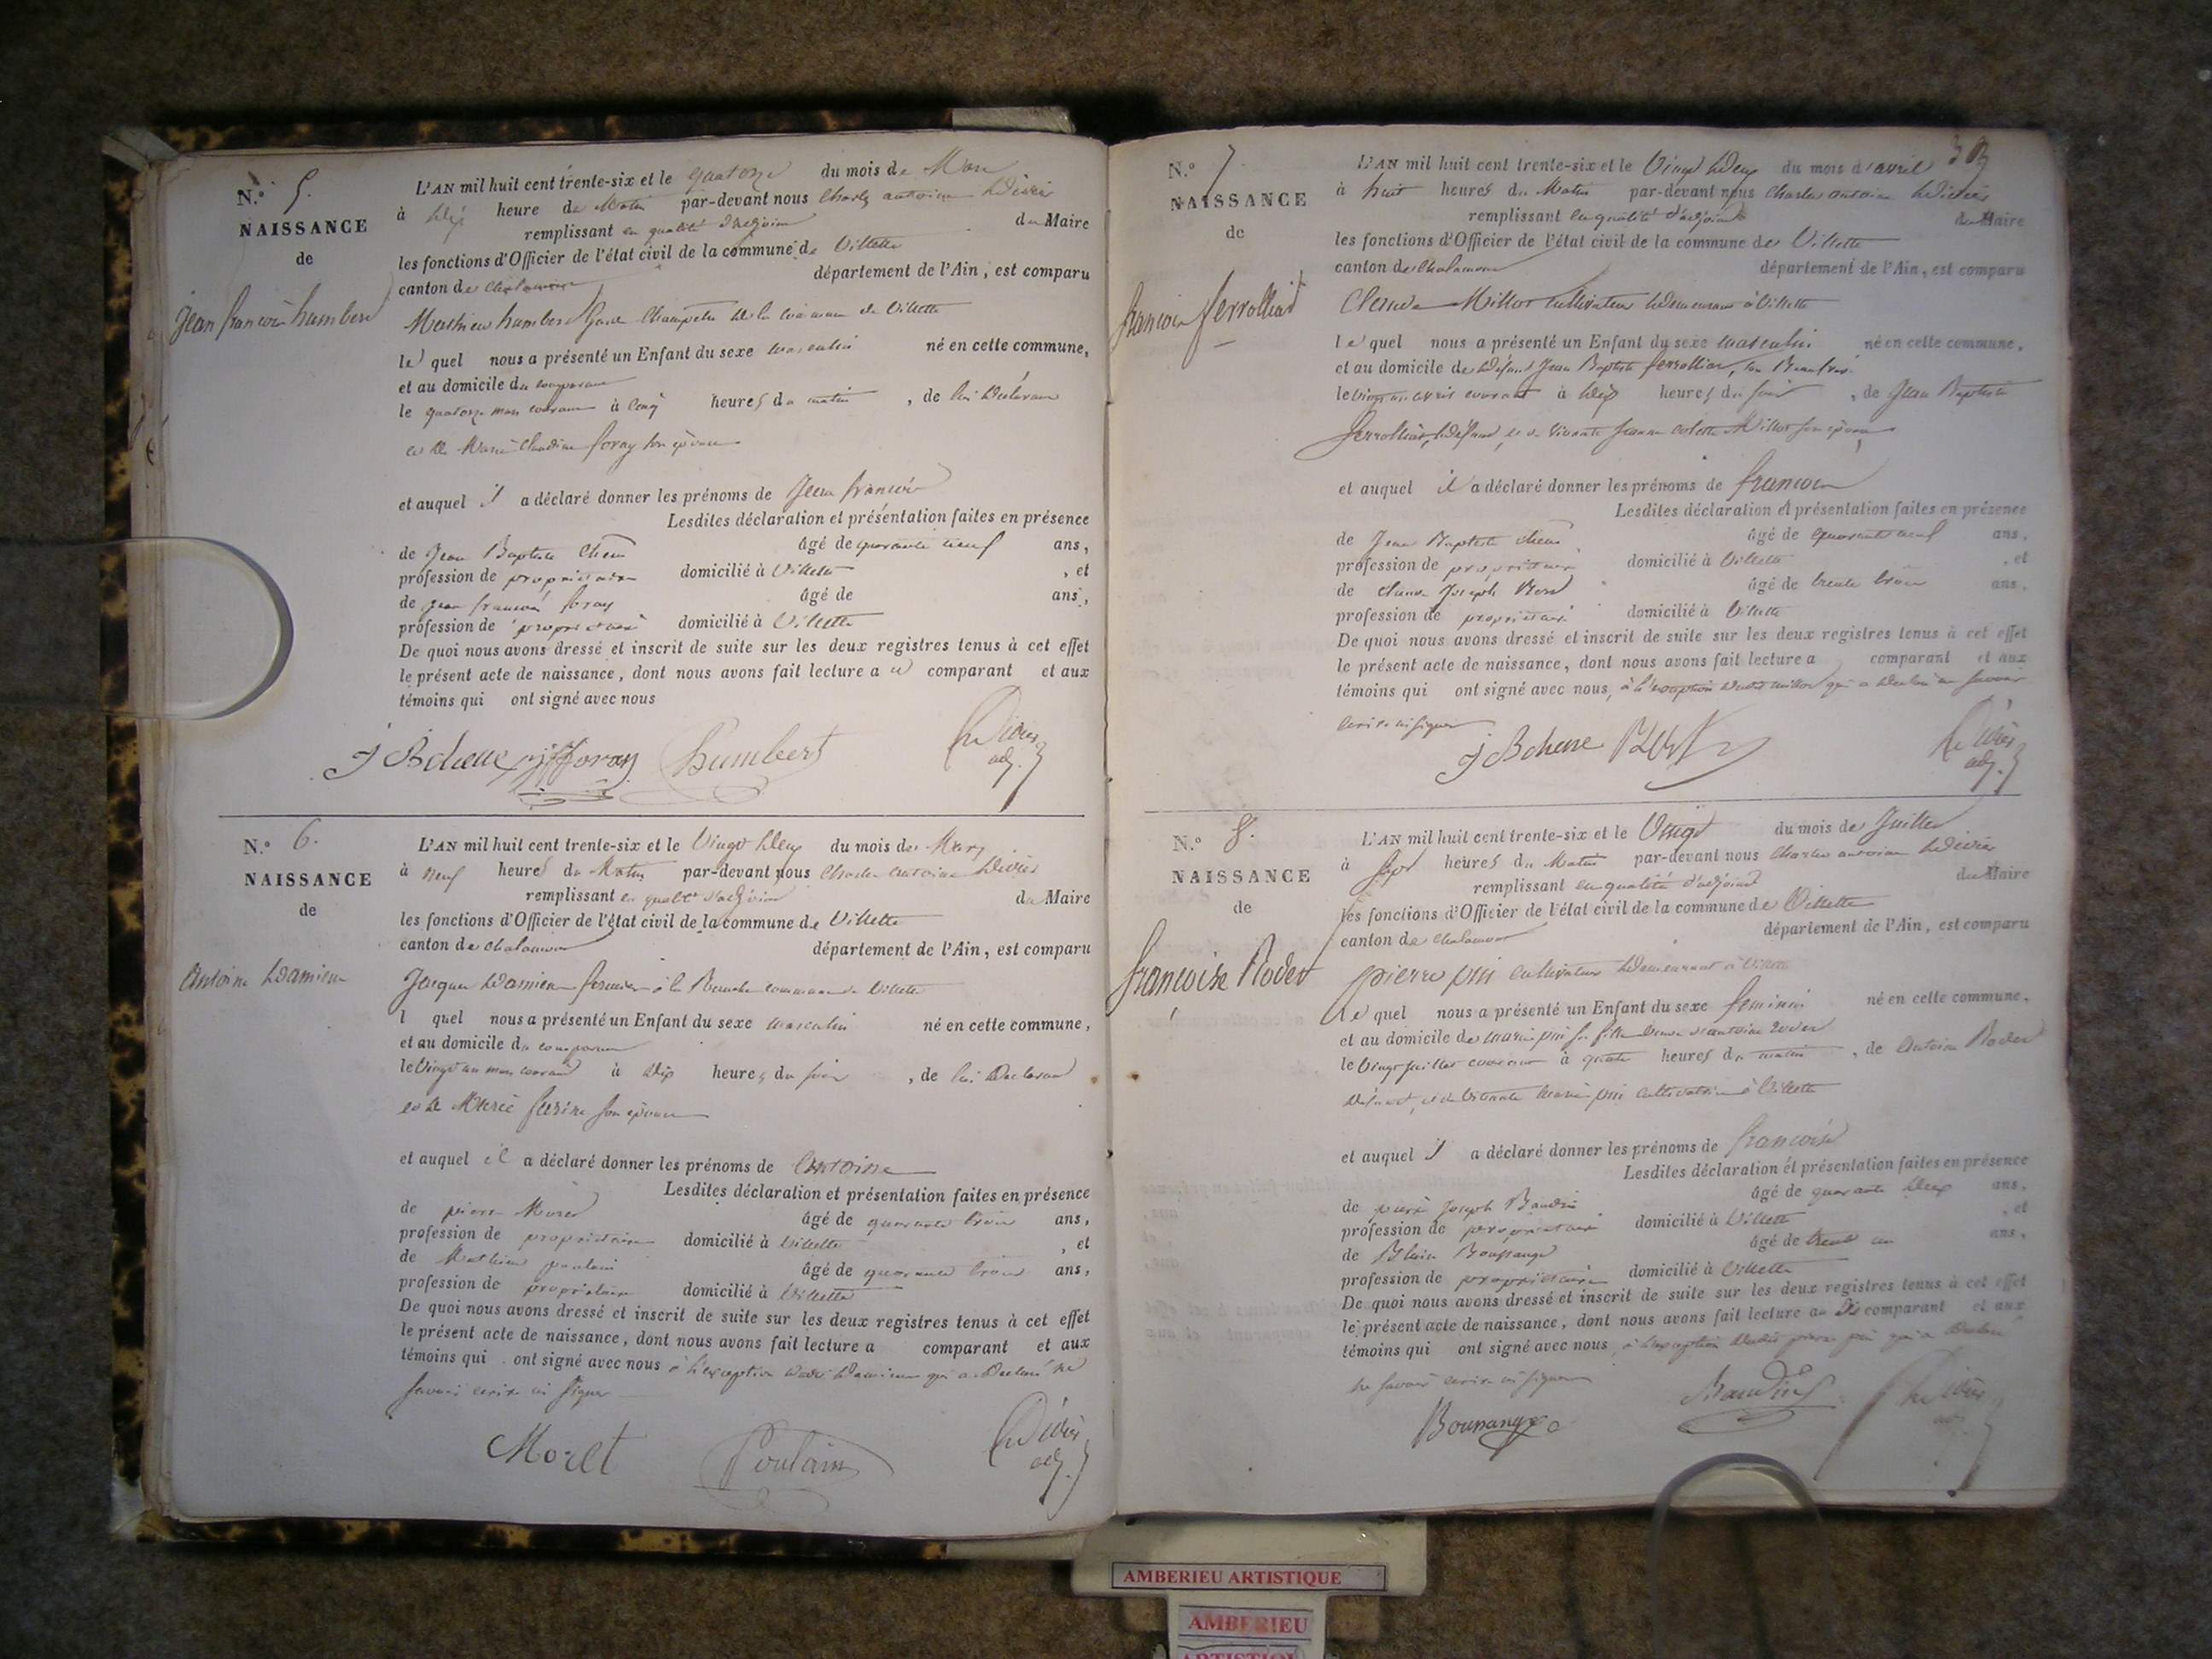 N.° 5.
NAISSANCE
de
Jean françois humbert
L'AN mil huit cent trente-six et le quatorze du mois de Mars
à dix heure du Matin par-devant nous Charles antoine
remplissant en qualité d'adjoint du Maire
les fonctions d'Officier de l'état civil de la commune de Villette
canton de Chalamont département de l'Ain, est comparu
Mathieu humbert Garde Champetre de la commune de Villette
le quel nous a présenté un Enfant du sexe masculin né en cette commune,
et au domicile du comparant
le quatorze mars courant à cinq heures du matin, de lui Déclarant
et de Marie Claudine foray son épouse
et auquel il a déclaré donner les prénoms de Jean françois
Lesdites déclaration et présentation faites en présence
de Jean Baptiste âgé de quarante neuf ans,
profession de propriétaire domicilié à Villette, et
de jean françois foray âgé de ans,
profession de propriétaire domicilié à Villette
De quoi nous avons dressé et inscrit de suite sur les deux registres tenus à cet effet
le présent acte de naissance, dont nous avons fait lecture a comparant et aux
témoins qui ont signé avec nous
foray humbert
adj.
N.° 6.
NAISSANCE
de
Antoine Damien
L'AN mil huit cent trente-six et le Vingt Deux du mois de Mars
à neuf heures du Matin par-devant nous Charles antoine
remplissant en qualité d'adjoint du Maire
les fonctions d'Officier de l'état civil de la commune de Villette
canton de Chalamont département de l'Ain, est comparu
Jacques Damien fermier à la commune de Villette
l quel nous a présenté un Enfant du sexe masculin né en cette commune,
et au domicile du comparant
le Vingt un mars courant à dix heures du soir, de lui Déclarant
et de Marie son épouse
et auquel il a déclaré donner les prénoms de Antoine
Lesdites déclaration et présentation faites en présence
de pierre Moret âgé de quarante trois ans,
profession de propriétaire domicilié à Villette, et
de Mathieu poulain âgé de quarante trois ans,
profession de propriétaire domicilié à Villette
De quoi nous avons dressé et inscrit de suite sur les deux registres tenus à cet effet
le présent acte de naissance, dont nous avons fait lecture a comparant et aux
témoins qui ont signé avec nous à l'exception Damien qui a Déclaré ne
savoir écrire ni signer
Moret Poulain
adj.
N.° 7.
NAISSANCE
de
francois ferrolliat
L'AN mil huit cent trente-six et le Vingt Deux du mois d'avril
à huit heures du Matin par-devant nous Charles antoine
remplissant en qualité d'adjoint du Maire
les fonctions d'Officier de l'état civil de la commune de Villette
canton de Chalamont département de l'Ain, est comparu
Claude Millot Cultivateur Demeurant à Villette
le quel nous a présenté un Enfant du sexe masculin né en cette commune,
et au domicile de Défunt Jean Baptiste ferrolliat, son Beaufrère
le vingt un avril courant à dix heures du soir, de Jean Baptiste
ferrolliat, Défunt, et de Vivante Jeanne colette Millot son épouse
et auquel il a déclaré donner les prénoms de francois
Lesdites déclaration et présentation faites en présence
de Jean Baptiste âgé de quarante neuf ans,
profession de propriétaire domicilié à Villette, et
de claude Joseph âgé de trente trois ans,
profession de propriétaire domicilié à Villette
De quoi nous avons dressé et inscrit de suite sur les deux registres tenus à cet effet
le présent acte de naissance, dont nous avons fait lecture a comparant et aux
témoins qui ont signé avec nous, à l'exception Dudit millot qui a Déclaré ne savoir
écrire ni signer
adj.
N.° 8.
NAISSANCE
de
françoise Rodet
L'AN mil huit cent trente-six et le Vingt du mois de Juillet
à sept heures du Matin par-devant nous Charles antoine
remplissant en qualité d'adjoint du Maire
les fonctions d'Officier de l'état civil de la commune de Villette
canton de Chalamont département de l'Ain, est comparu
pierre cultivateur Demeurant à Villette
le quel nous a présenté un Enfant du sexe feminin né en cette commune,
et au domicile de marie sa fille veuve d'antoine rodet
le Vingt juillet courant à quatre heures du matin, de Antoine Rodet
Défunt, et de Vivante marie cultivatrice à Villette
et auquel il a déclaré donner les prénoms de francoise
Lesdites déclaration et présentation faites en présence
de pierre Joseph Baudin âgé de quarante Deux ans,
profession de propriétaire domicilié à Villette, et
de Boussange âgé de trente un ans,
profession de propriétaire domicilié à Villette
De quoi nous avons dressé et inscrit de suite sur les deux registres tenus à cet effet
le présent acte de naissance, dont nous avons fait lecture au Dit comparant et aux
témoins qui ont signé avec nous, à l'exception Dudit pierre qui a Déclaré
ne savoir écrire ni signer
Boussange Baudin
AMBERIEU ARTISTIQUE
AMBERIEU
ARTISTIQUE